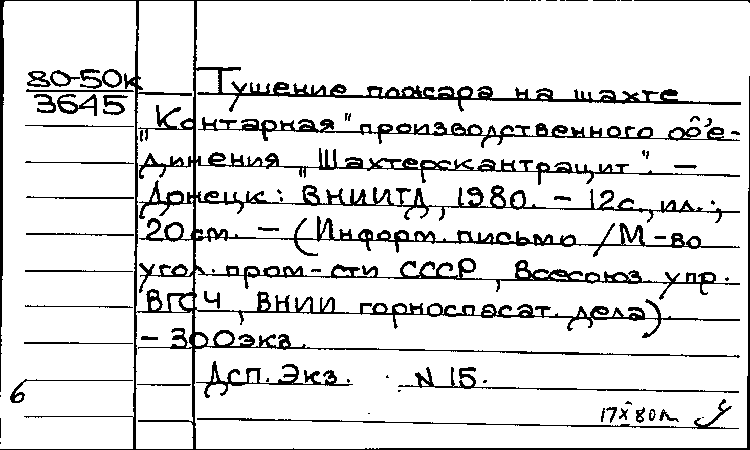 80-50к
3645
Тушение пожара на шахте
„Контарная" производственного объе-
динения „Шахтерскантрацит". –
Донецк: ВНИИГД, 1980. – 12с., ил.;
20 см. – (Информ. письмо / М-во
угол. пром-сти СССР, Всесоюз. упр.
ВГСЧ, ВНИИ горноспасат. дела).
– 300 экз.
Дсп. Экз. N 15.
6
17 X 80